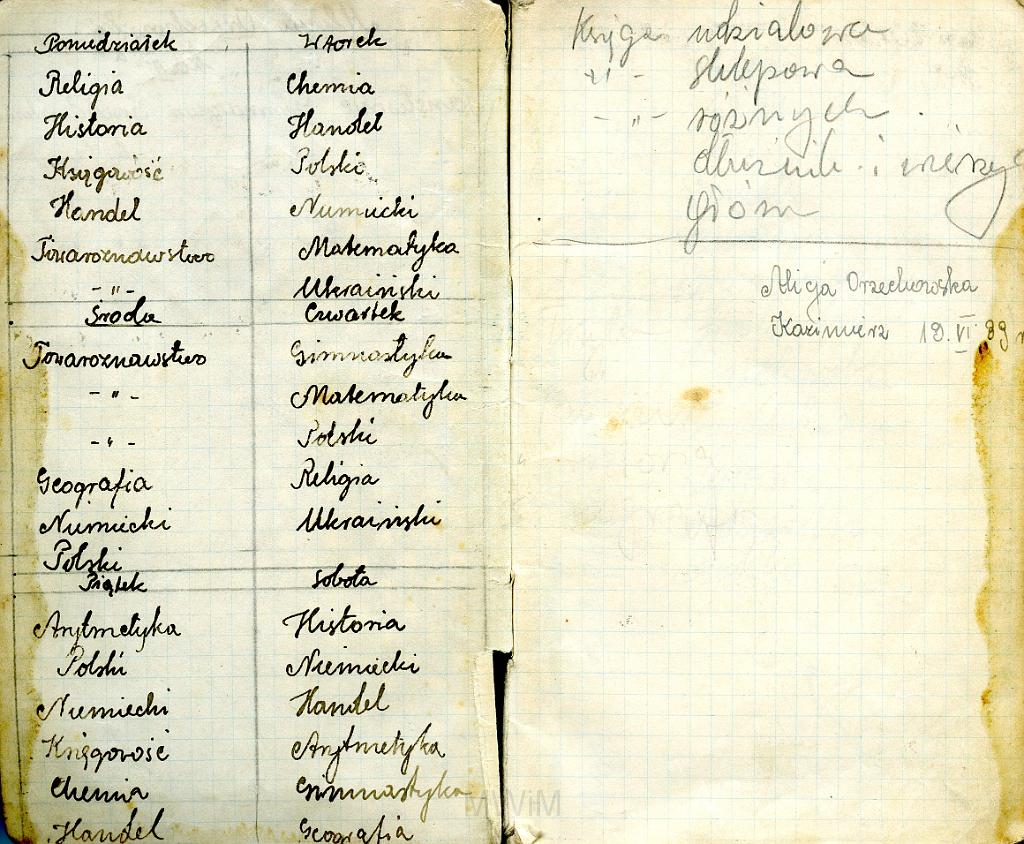 Poniedziałek
Religia
Historia
Księgowość
Handel
Towaroznawstwo
- " -
Wtorek
Chemia
Handel
Polski
Niemiecki
Matematyka
Ukraiński
Środa
Towaroznawstwo
- " -
- " -
Geografia
Niemiecki
Polski
Czwartek
Gimnastyka
Matematyka
Polski
Religia
Ukraiński
Piątek
Arytmetyka
Polski
Niemiecki
Księgowość
Chemia
Handel
Sobota
Historia
Niemiecki
Handel
Arytmetyka
Gimnastyka
Geografia
Księga udziałowa
- " - sklepowa
- " - różnych
dłużnik. i wierzy
Alicja Orzechowska
Kazimierz 19. VI 39 r
MWiM